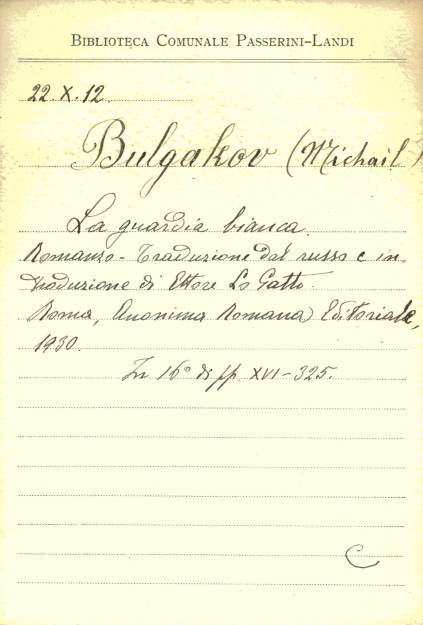 BIBLIOTECA COMUNALE PASSERINI-LANDI
22.X.12.
Bulgakov (Michail
La guardia bianca.
Romanzo - Traduzione dal russo e in-
troduzione di Ettore Lo Gatto.
Roma, Anonima Romana Editoriale,
1930.
In 16° di pp. XVI-325.
C